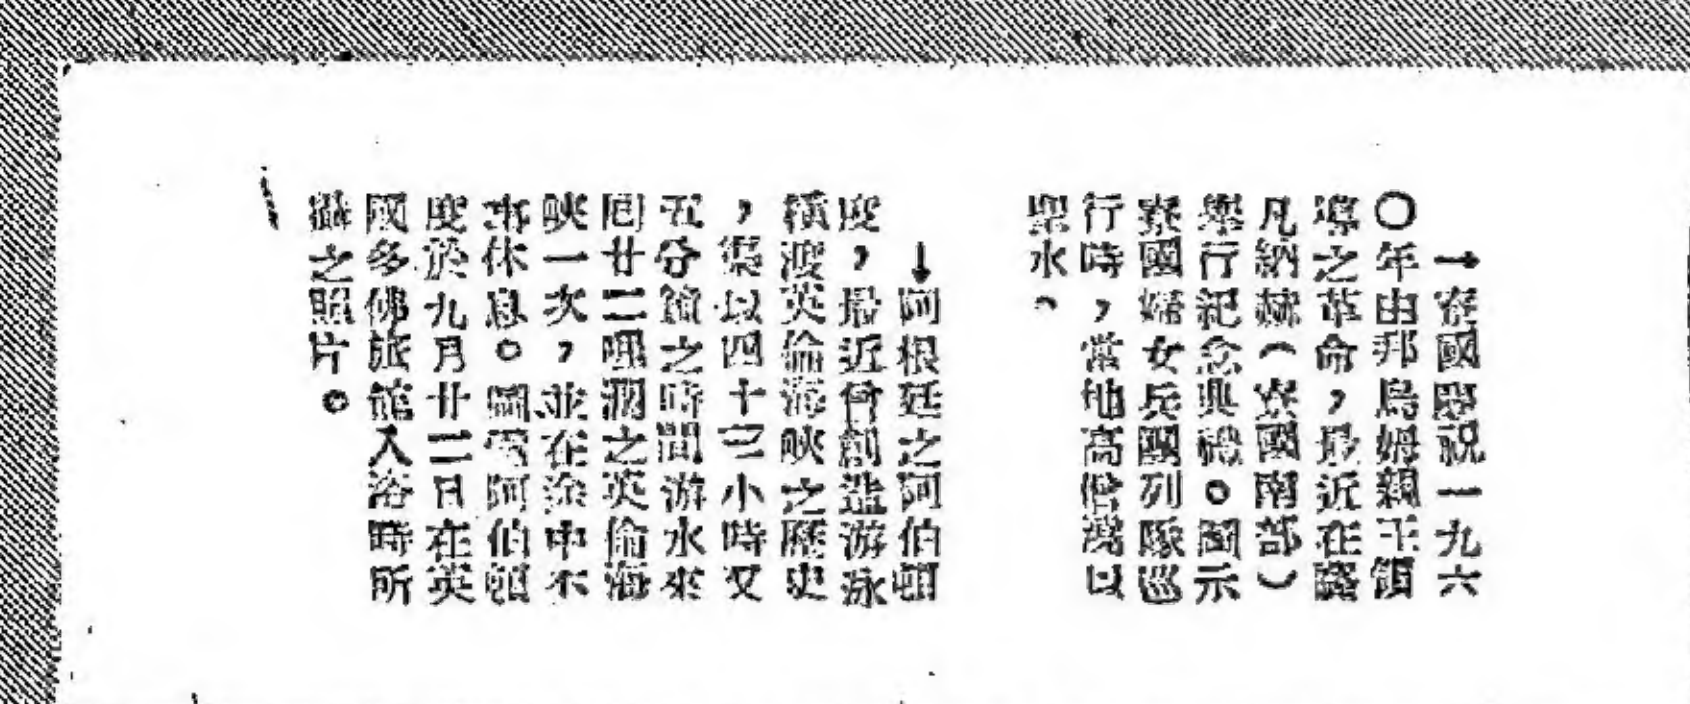 →寮國慶祝一九六
〇年由邦烏姆親王領
導之革命,最近在鑾
凡納赫(寮國南部)
舉行紀念典禮。圖示
寮國婦女兵團列隊巡
行時,當地高僧灑以
聖水。
↓阿根廷之阿伯頓
度,最近曾創造游泳
橫渡英倫海峽之歷史
,渠以四十三小時又
五分鐘之時間游水來
回廿二哩濶之英倫海
峽一次,並在途中不
事休息。圖為阿伯頓
度於九月廿二日在英
國多佛旅館入浴時所
攝之照片。